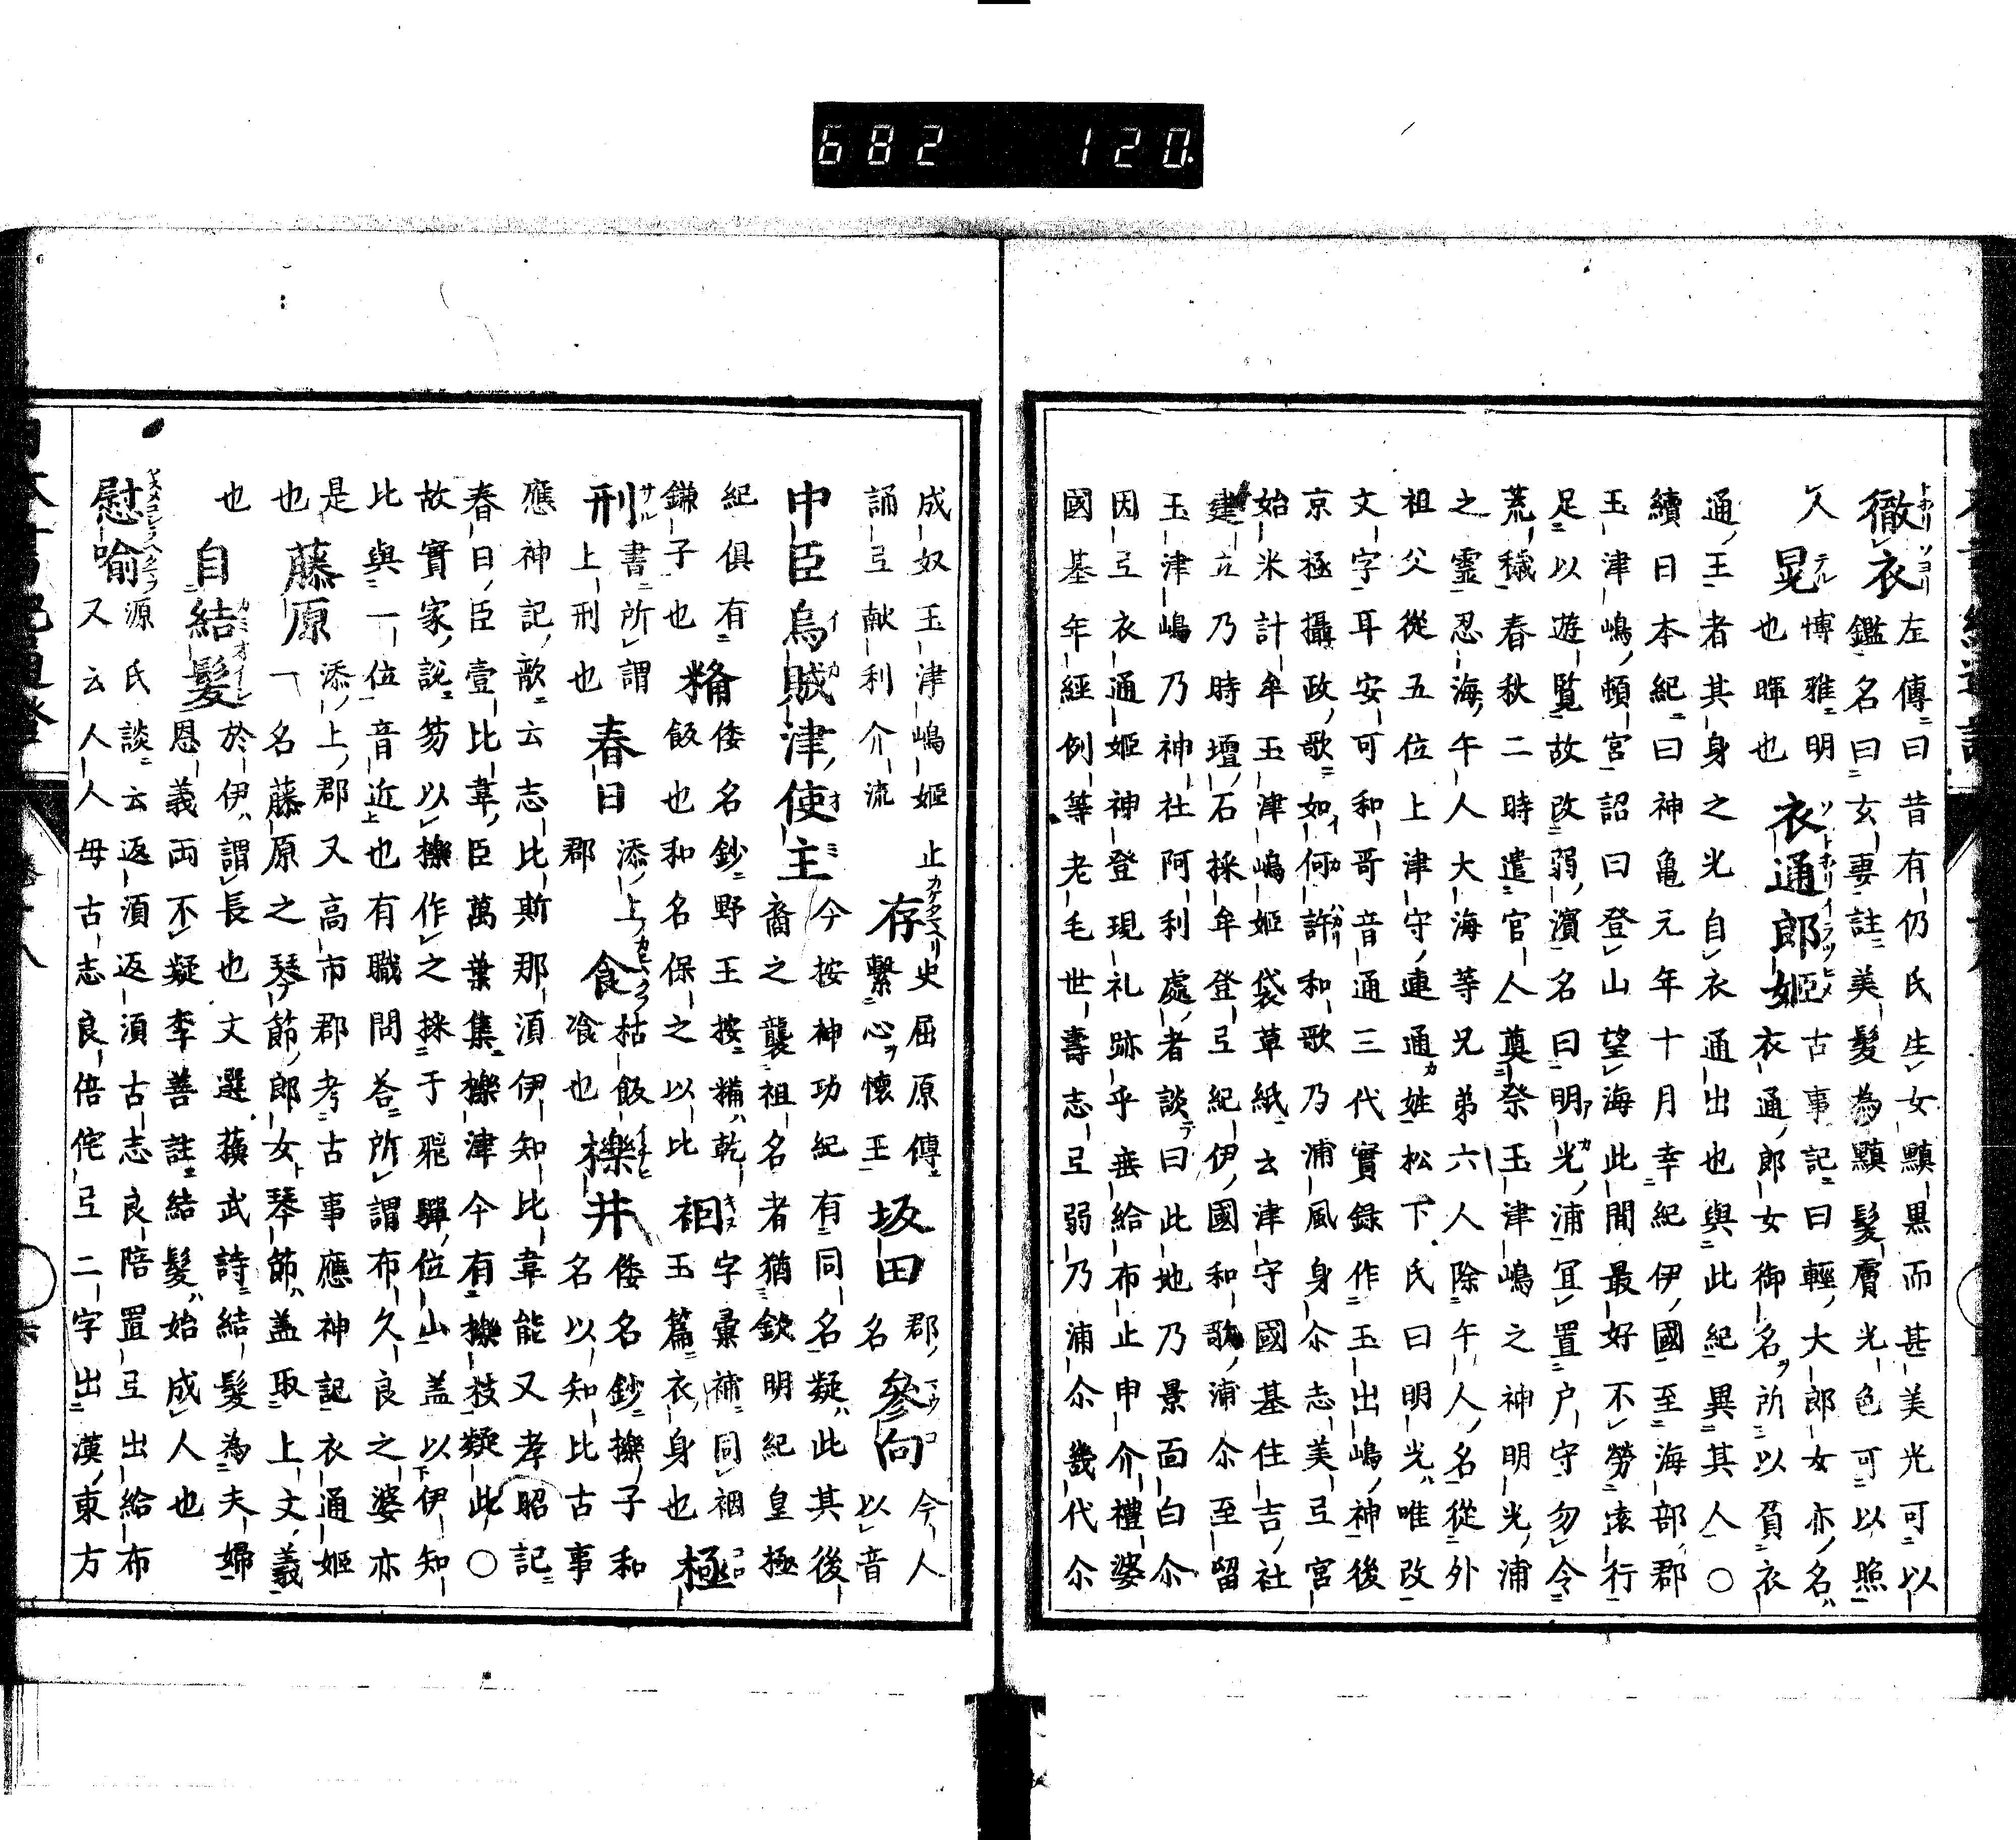 682 120
徹衣 左傳曰昔有仍氏生女黰黒而甚美光可以
鑑名曰玄妻註美髮為黰髮膚光色可以照
人 晃 博雅明也暉也 衣通郎姬 古事記曰輕大郎女亦名
衣通郎女御名所以負衣
通王者其身之光自衣通出也與此紀異其人○
續日本紀曰神亀元年十月幸紀伊國至海部郡
玉津嶋頓宮詔曰登山望海此間最好不勞遠行
足以遊覧故改弱濱名曰明光浦宜置户守勿令
荒穢春秋二時遣官人奠祭玉津嶋之神明光浦
之霊忍海午人大海等兄弟六人除午人名從外
祖父從五位上津守連通姓松下氏曰明光唯改
文字耳安可和哥音通三代實録作玉出嶋神後
京極攝政歌如何許和歌乃浦風身尒志美弖宮
始米計牟玉津嶋姬袋草紙云津守國基住吉社
建立乃時壇石採牟登弖紀伊國和歌浦尒至留
玉津嶋乃神社阿利處者談曰此地乃景面白尒
因弖衣通姬神登現礼跡乎垂給布止申介禮婆
國基年經例等老毛世壽志弖弱乃浦尒幾代尒
成奴玉津嶋姬止
誦弖献利介流 存 史屈原傳
繫心懷王 坂田 郡
名 參向 今人
以音
中臣烏賊津使主 今按神功紀有同名疑此其後
裔之襲祖名者猶欽明紀皇極
紀俱有 糒 倭名鈔野王按糒乾
鎌子也 飯也和名保之以比 裀 字彙補同裀
玉篇衣身也 極
刑 書所謂
上刑也 春日 添上
郡 食 枯飯
飡也 櫟井 倭名鈔擽子和
名以知比古事
應神記歌云志比斯那湏伊知比韋能又孝昭記
春日臣壹比韋臣萬葉集櫟津今有櫟枝疑此○
故實家說笏以櫟作之採于飛騨位山盖以伊知
比與一位音近也有職問荅所謂布久良之婆亦
是也 藤原 添上郡又高市郡考古事應神記衣通姬
一名藤原之琴節郎女琴節盖取上文義
也 自結髮 於伊謂長也文選蘓武詩結髮為夫婦
恩義両不疑李善註結髮始成人也
慰喻 源氏談云返湏返湏古志良陪置弖出給布
又云人人毋古志良倍侘弖二字出漢東方